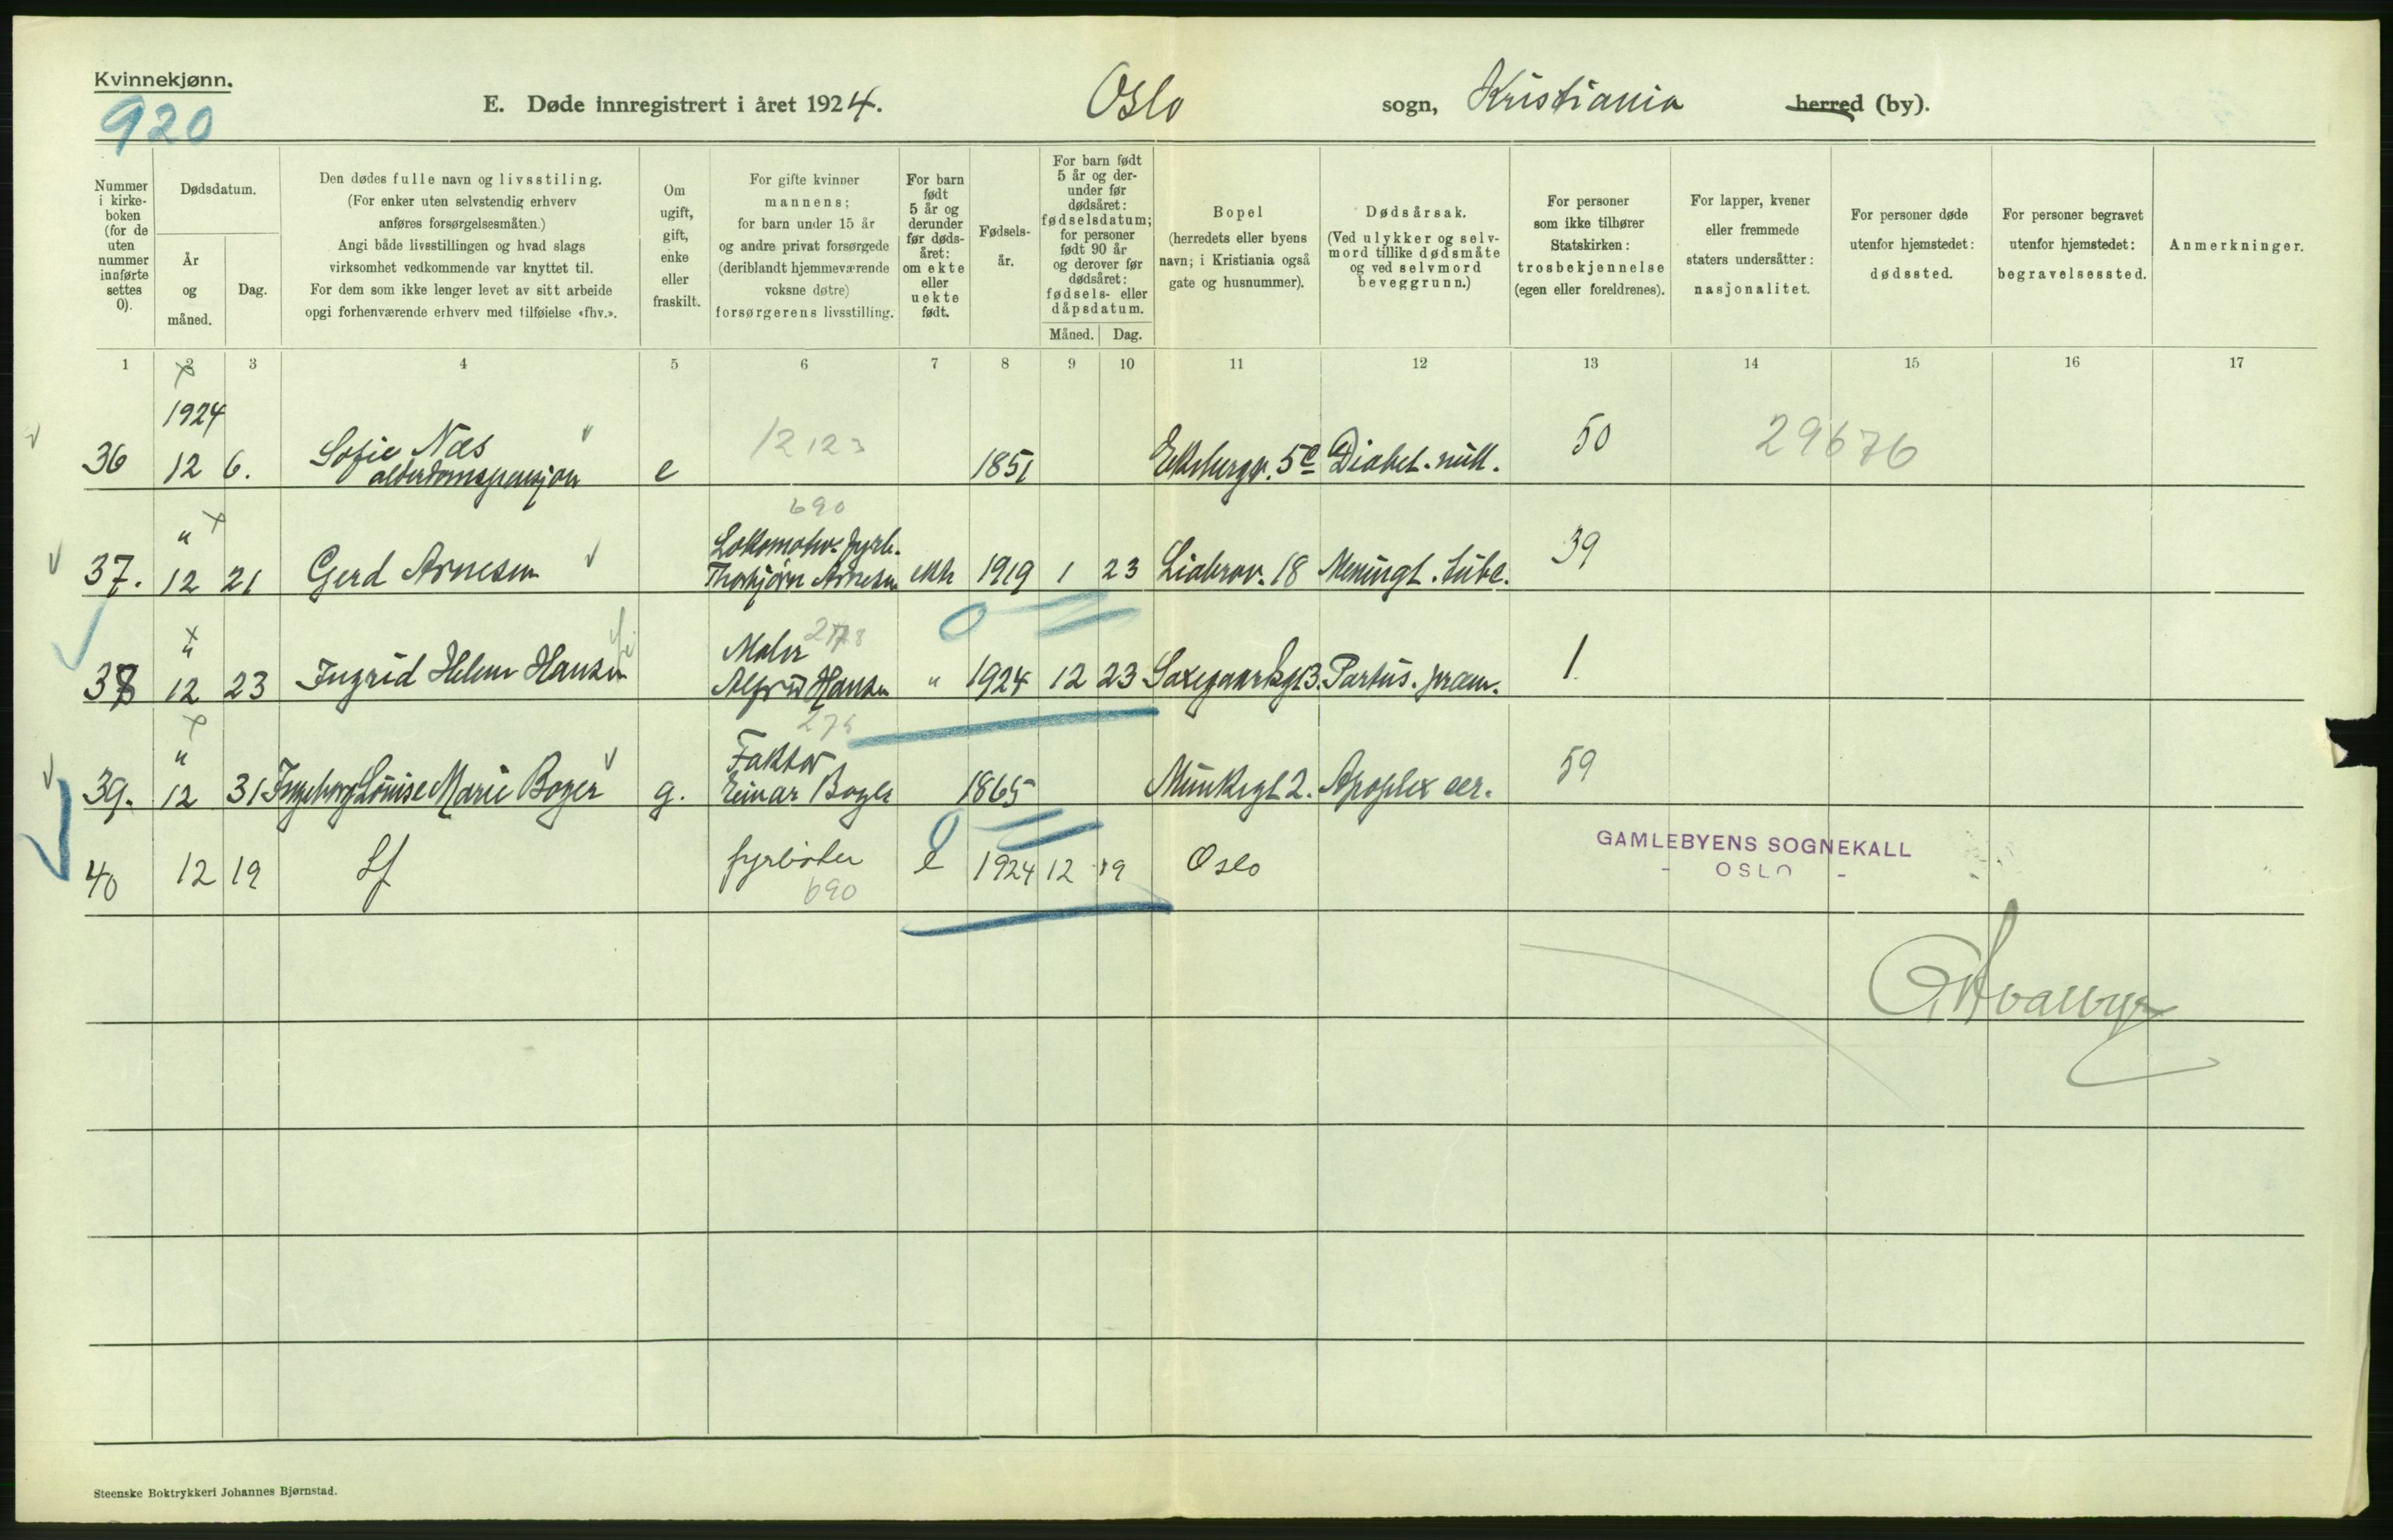 Kvinnekjønn.
920
E. Døde innregistrert i året 1924.
Oslo sogn, Kristiania herred (by).
Nummer i kirke-boken (for de uten nummer innførte settes 0).
Dødsdatum.
År og måned.
Dag.
Den dødes fulle navn og livsstiling.
(For enker uten selvstendig erhverv
anføres forsørgelsesmåten.)
Angi både livsstillingen og hvad slags
virksomhet vedkommende var knyttet til.
For dem som ikke lenger levet av sitt arbeide
opgi forhenværende erhverv med tilføielse «fhv.».
Om
ugift,
gift,
enke
eller
fraskilt.
For gifte kvinner
mannens;
for barn under 15 år
og andre privat forsørgede
(deriblandt hjemmeværende
voksne døtre)
forsørgerens livsstilling.
For barn
født
5 år og
derunder
før døds-
året:
om ekte
eller
uekte
født.
Fødsels-
år.
For barn født
5 år og der-
under før
dødsåret:
fødselsdatum;
for personer
født 90 år
og derover før
dødsåret:
fødsels- eller
dåpsdatum.
Måned. Dag.
Bopel
(herredets eller byens
navn; i Kristiania også
gate og husnummer).
Dødsårsak.
(Ved ulykker og selv-
mord tillike dødsmåte
og ved selvmord
beveggrunn.)
For personer
som ikke tilhører
Statskirken:
trosbekjennelse
(egen eller foreldrenes).
For lapper, kvener
eller fremmede
staters undersåtter:
nasjonalitet.
For personer døde
utenfor hjemstedet:
dødssted.
For personer begravet
utenfor hjemstedet:
begravelsessted.
Anmerkninger.
1 2 3 4 5 6 7 8 9 10 11 12 13 14 15 16 17
1924
36 12 6. Sofie Næs e 12123 1851 Ekebergv. 5c Diabet. mell. 50 29676
alderdomspensjon
690
" Lokomotiv-fyrb.
37. 12 21 Gerd Arnesen Thorbjørn Arnesen ekte 1919 1 23 Liabrov. 18 Meningt. tube. 39
" Maler 278
38 12 23 Ingrid Helene Hansen Alfred Hansen " 1924 12 23 Saxegaardsgt 3. Partus. præm. 1
275
" Faktor
39. 12 31 Ingeborg Louise Marie Boger g. Einar Boger 1865 Munkegt 2. Apoplex cer. 59
40 12 19 Lf fyrbøter e 1924 12 19 Oslo
690
GAMLEBYENS SOGNEKALL
- OSLO -
Steenske Boktrykkeri Johannes Bjørnstad.